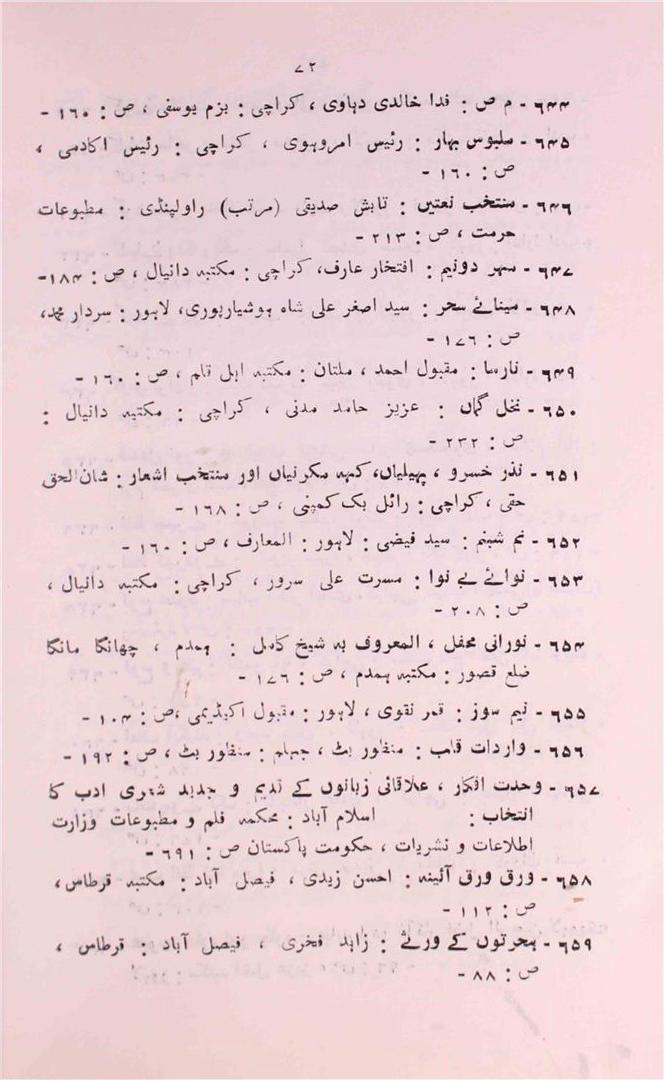 ۷۲
۶۴۴ - م ص : فدا خالدی دہلوی ، کراچی : بزم یوسفی ، ص : ۱۶۰ -
۶۴۵ - ملبوس بہار : رئیس امروہوی ، کراچی : رئیس اکادمی ،
ص : ۱۶۰ -
۶۴۶ - منتخب نعتیں : تابش صدیقی (مرتب) راولپنڈی : مطبوعات
حرمت ، ص : ۲۱۳ -
۶۴۷ - مہر دونیم : افتخار عارف، کراچی : مکتبہ دانیال ، ص : ۱۸۴-
۶۴۸ - مینائے سحر : سید اصغر علی شاہ ہوشیارپوری، لاہور : سردار محمد،
ص : ۱۷۶ -
۶۴۹ - نارسا : مقبول احمد ، ملتان : مکتبہ اہل قلم ، ص : ۱۶۰ -
۶۵۰ - نخل گماں : عزیز حامد مدنی ، کراچی : مکتبہ دانیال :
ص : ۲۳۲ -
۶۵۱ - نذر خسرو ، پہیلیاں، کہہ مکرنیاں اور منتخب اشعار : شان الحق
حقی ، کراچی : رائل بک کمپنی ، ص : ۱۶۸ -
۶۵۲ - نم شبنم : سید فیضی : لاہور : المعارف ، ص : ۱۶۰ -
۶۵۳ - نوائے بے نوا : مسرت علی سرور ، کراچی : مکتبہ دانیال ،
ص : ۲۰۸ -
۶۵۴ - نورانی محفل ، المعروف بہ شیخ کامل : ہمدم ، چھانگا مانگا
ضلع قصور : مکتبہ ہمدم ، ص : ۱۷۶ -
۶۵۵ - نیم سوز : قمر نقوی ، لاہور : مقبول اکیڈیمی ،ص : ۱۰۴ -
۶۵۶ - واردات قلب : منظور بٹ ، جہلم : منظور بٹ ، ص : ۱۹۲ -
۶۵۷ - وحدت افکار ، علاقائی زبانوں کے قدیم و جدید شعری ادب کا
انتخاب : اسلام آباد : محکمہ فلم و مطبوعات وزارت
اطلاعات و نشریات ، حکومت پاکستان ص : ۶۹۱ -
۶۵۸ - ورق ورق آئینہ : احسن زیدی ، فیصل آباد : مکتبہ قرطاس،
ص : ۱۱۲ -
۶۵۹ - ہجرتوں کے ورثے : زاہد فخری ، فیصل آباد : قرطاس ،
ص : ۸۸ -